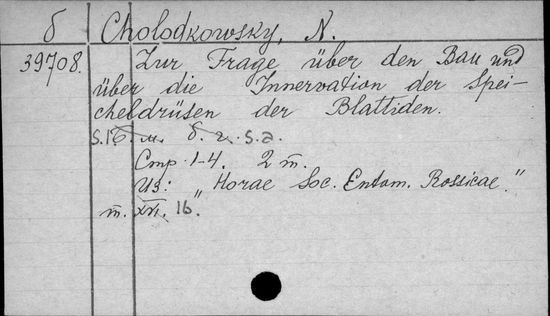 б Cholodkowsky, N.
39708. Zur Frage über den Bau und
über die Innervation der Spei-
cheldrüsen der Blattiden.
s.l. б. м. б. г. s.a.
Стр. 1-4. 2 т.
Из: „Horae Soc. Entom. Rossicae."
т. XVI. 16.